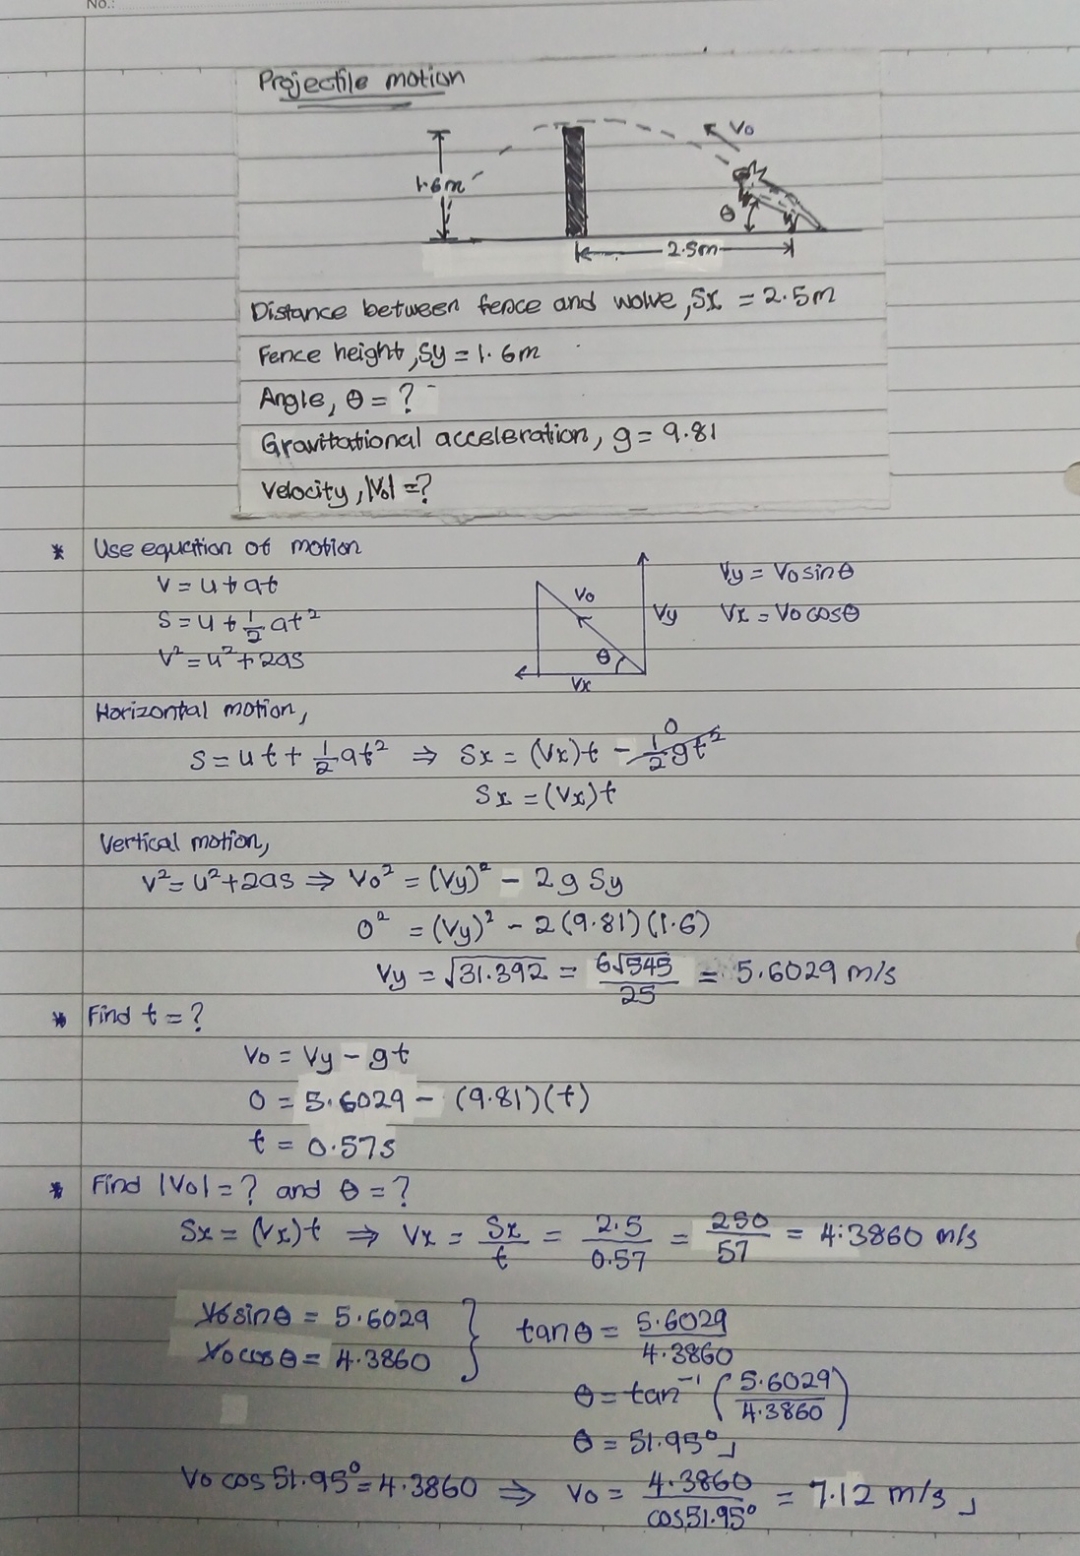 No.:
Projectile motion
Vo
1.6m
θ
2.5m
Distance between fence and wolve, Sx = 2.5m
Fence height, Sy = 1.6m
Angle, θ = ?
Gravitational acceleration, g = 9.81
Velocity, |Vo| = ?
* Use equation of motion
V = u + at
S = u + 1/2 at²
V² = u² + 2as
Vo
Vy
θ
Vx
Vy = Vo sinθ
Vx = Vo cosθ
Horizontal motion,
S = ut + 1/2 at² ⇒ Sx = (Vx)t - 1/2 gt² 0
Sx = (Vx)t
Vertical motion,
V² = u² + 2as ⇒ Vo² = (Vy)² - 2g Sy
0² = (Vy)² - 2(9.81)(1.6)
Vy = √31.392 = 6√545/25 = 5.6029 m/s
* Find t = ?
Vo = Vy - gt
0 = 5.6029 - (9.81)(t)
t = 0.57s
* Find |Vo| = ? and θ = ?
Sx = (Vx)t ⇒ Vx = Sx/t = 2.5/0.57 = 250/57 = 4.3860 m/s
Vo sinθ = 5.6029 } tanθ = 5.6029/4.3860
Vo cosθ = 4.3860
θ = tan⁻¹ (5.6029/4.3860)
θ = 51.95°
Vo cos 51.95° = 4.3860 ⇒ Vo = 4.3860/cos51.95° = 7.12 m/s